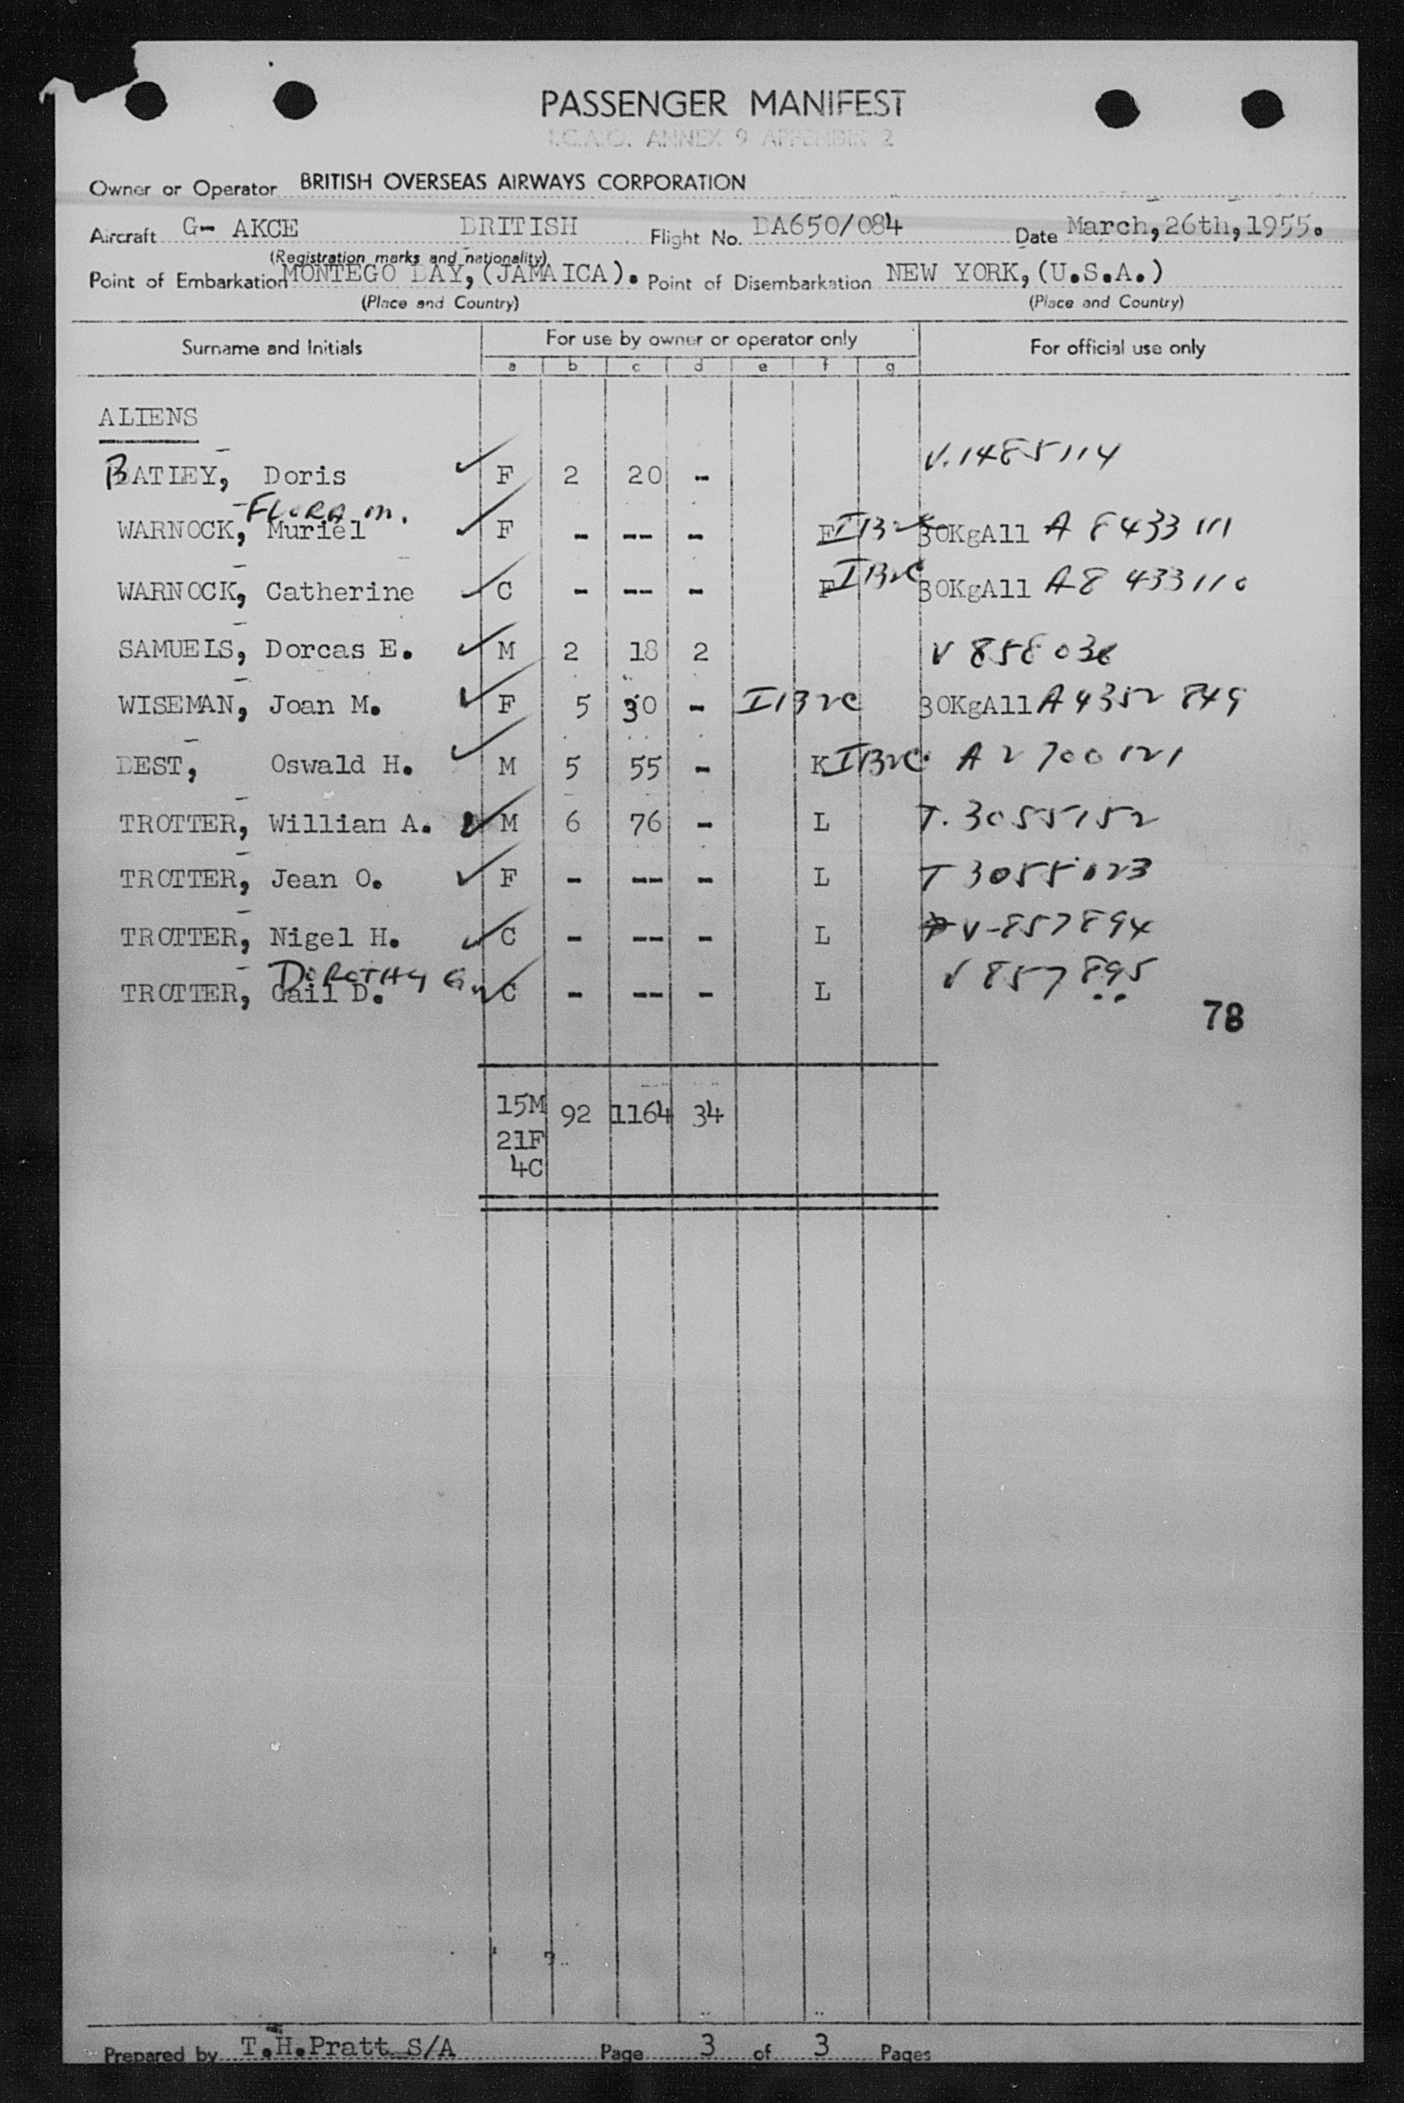 PASSENGER MANIFEST
I.C.A.O. ANNEX 9 APPENDIX 2
Owner or Operator BRITISH OVERSEAS AIRWAYS CORPORATION
Aircraft G- AKCE BRITISH Flight No. BA650/084 Date March, 26th, 1955.
(Registration marks and nationality)
Point of Embarkation MONTEGO BAY, (JAMAICA). Point of Disembarkation NEW YORK, (U.S.A.)
(Place and Country) (Place and Country)
Surname and Initials For use by owner or operator only For official use only
a b c d e f g
ALIENS
BATLEY, Doris F 2 20 - V.1485114
FLORA M.
WARNOCK, Muriel F - -- - F 30KgAll A 8433111
WARNOCK, Catherine C - -- - F 30KgAll A-8 433110
SAMUELS, Dorcas E. M 2 18 2 V 858036
WISEMAN, Joan M. F 5 30 - 30KgAll A 4352 849
BEST, Oswald H. M 5 55 - K A 2700121
TROTTER, William A. M 6 76 - L T. 3055152
TROTTER, Jean O. F - -- - L T 3055023
TROTTER, Nigel H. C - -- - L V-857894
DOROTHY G.
TROTTER, Gail D. C - -- - L V 857895
78
15M 92 1164 34
21F
4C
Prepared by T.H.Pratt S/A Page 3 of 3 Pages